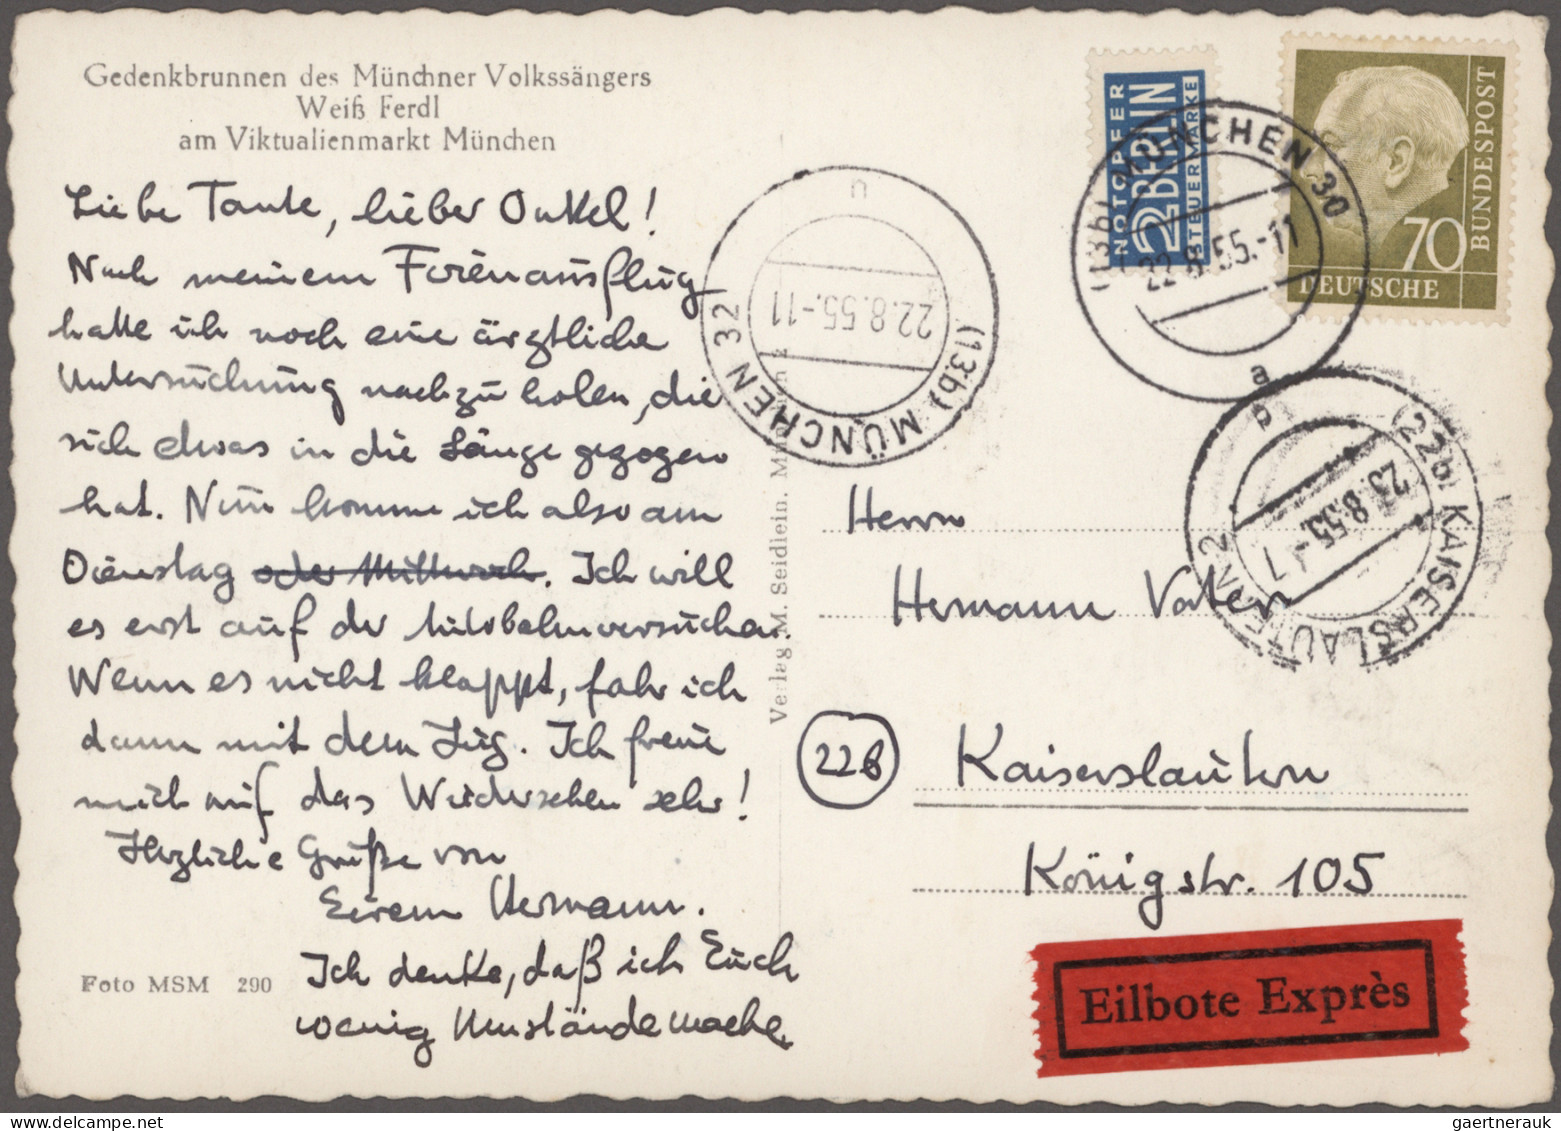 Gedenkbrunnen des Münchner Volkssängers
Weiß Ferdl
am Viktualienmarkt München
Liebe Tante, lieber Onkel!
Nach meinem Ferienausflug
hatte ich noch eine ärztliche
Untersuchung nachzuholen, die
sich etwas in die Länge gezogen
hat. Nun komme ich also am
Dienstag oder Mittwoch. Ich will
es erst auf der Autobahn versuchen.
Wenn es nicht klappt, fahr ich
dann mit dem Zug. Ich freue
mich auf das Wiedersehen sehr!
Herzliche Grüße von
Eurem Hermann.
Ich denke, daß ich Euch
wenig Umstände mache.
Foto MSM 290
Verlag M. Seidlein, München 2
NOTOPFER
2 BERLIN
STEUERMARKE
70
DEUTSCHE
BUNDESPOST
(13b) MÜNCHEN 30
22.8.55.-11
a
n
(13b) MÜNCHEN 32
22.8.55.-11
(22b) KAISERSLAUTERN 2
23.8.55.-7
p
Herrn
Hermann Vater
22b
Kaiserslautern
Königstr. 105
Eilbote Exprès
gaertnerauk